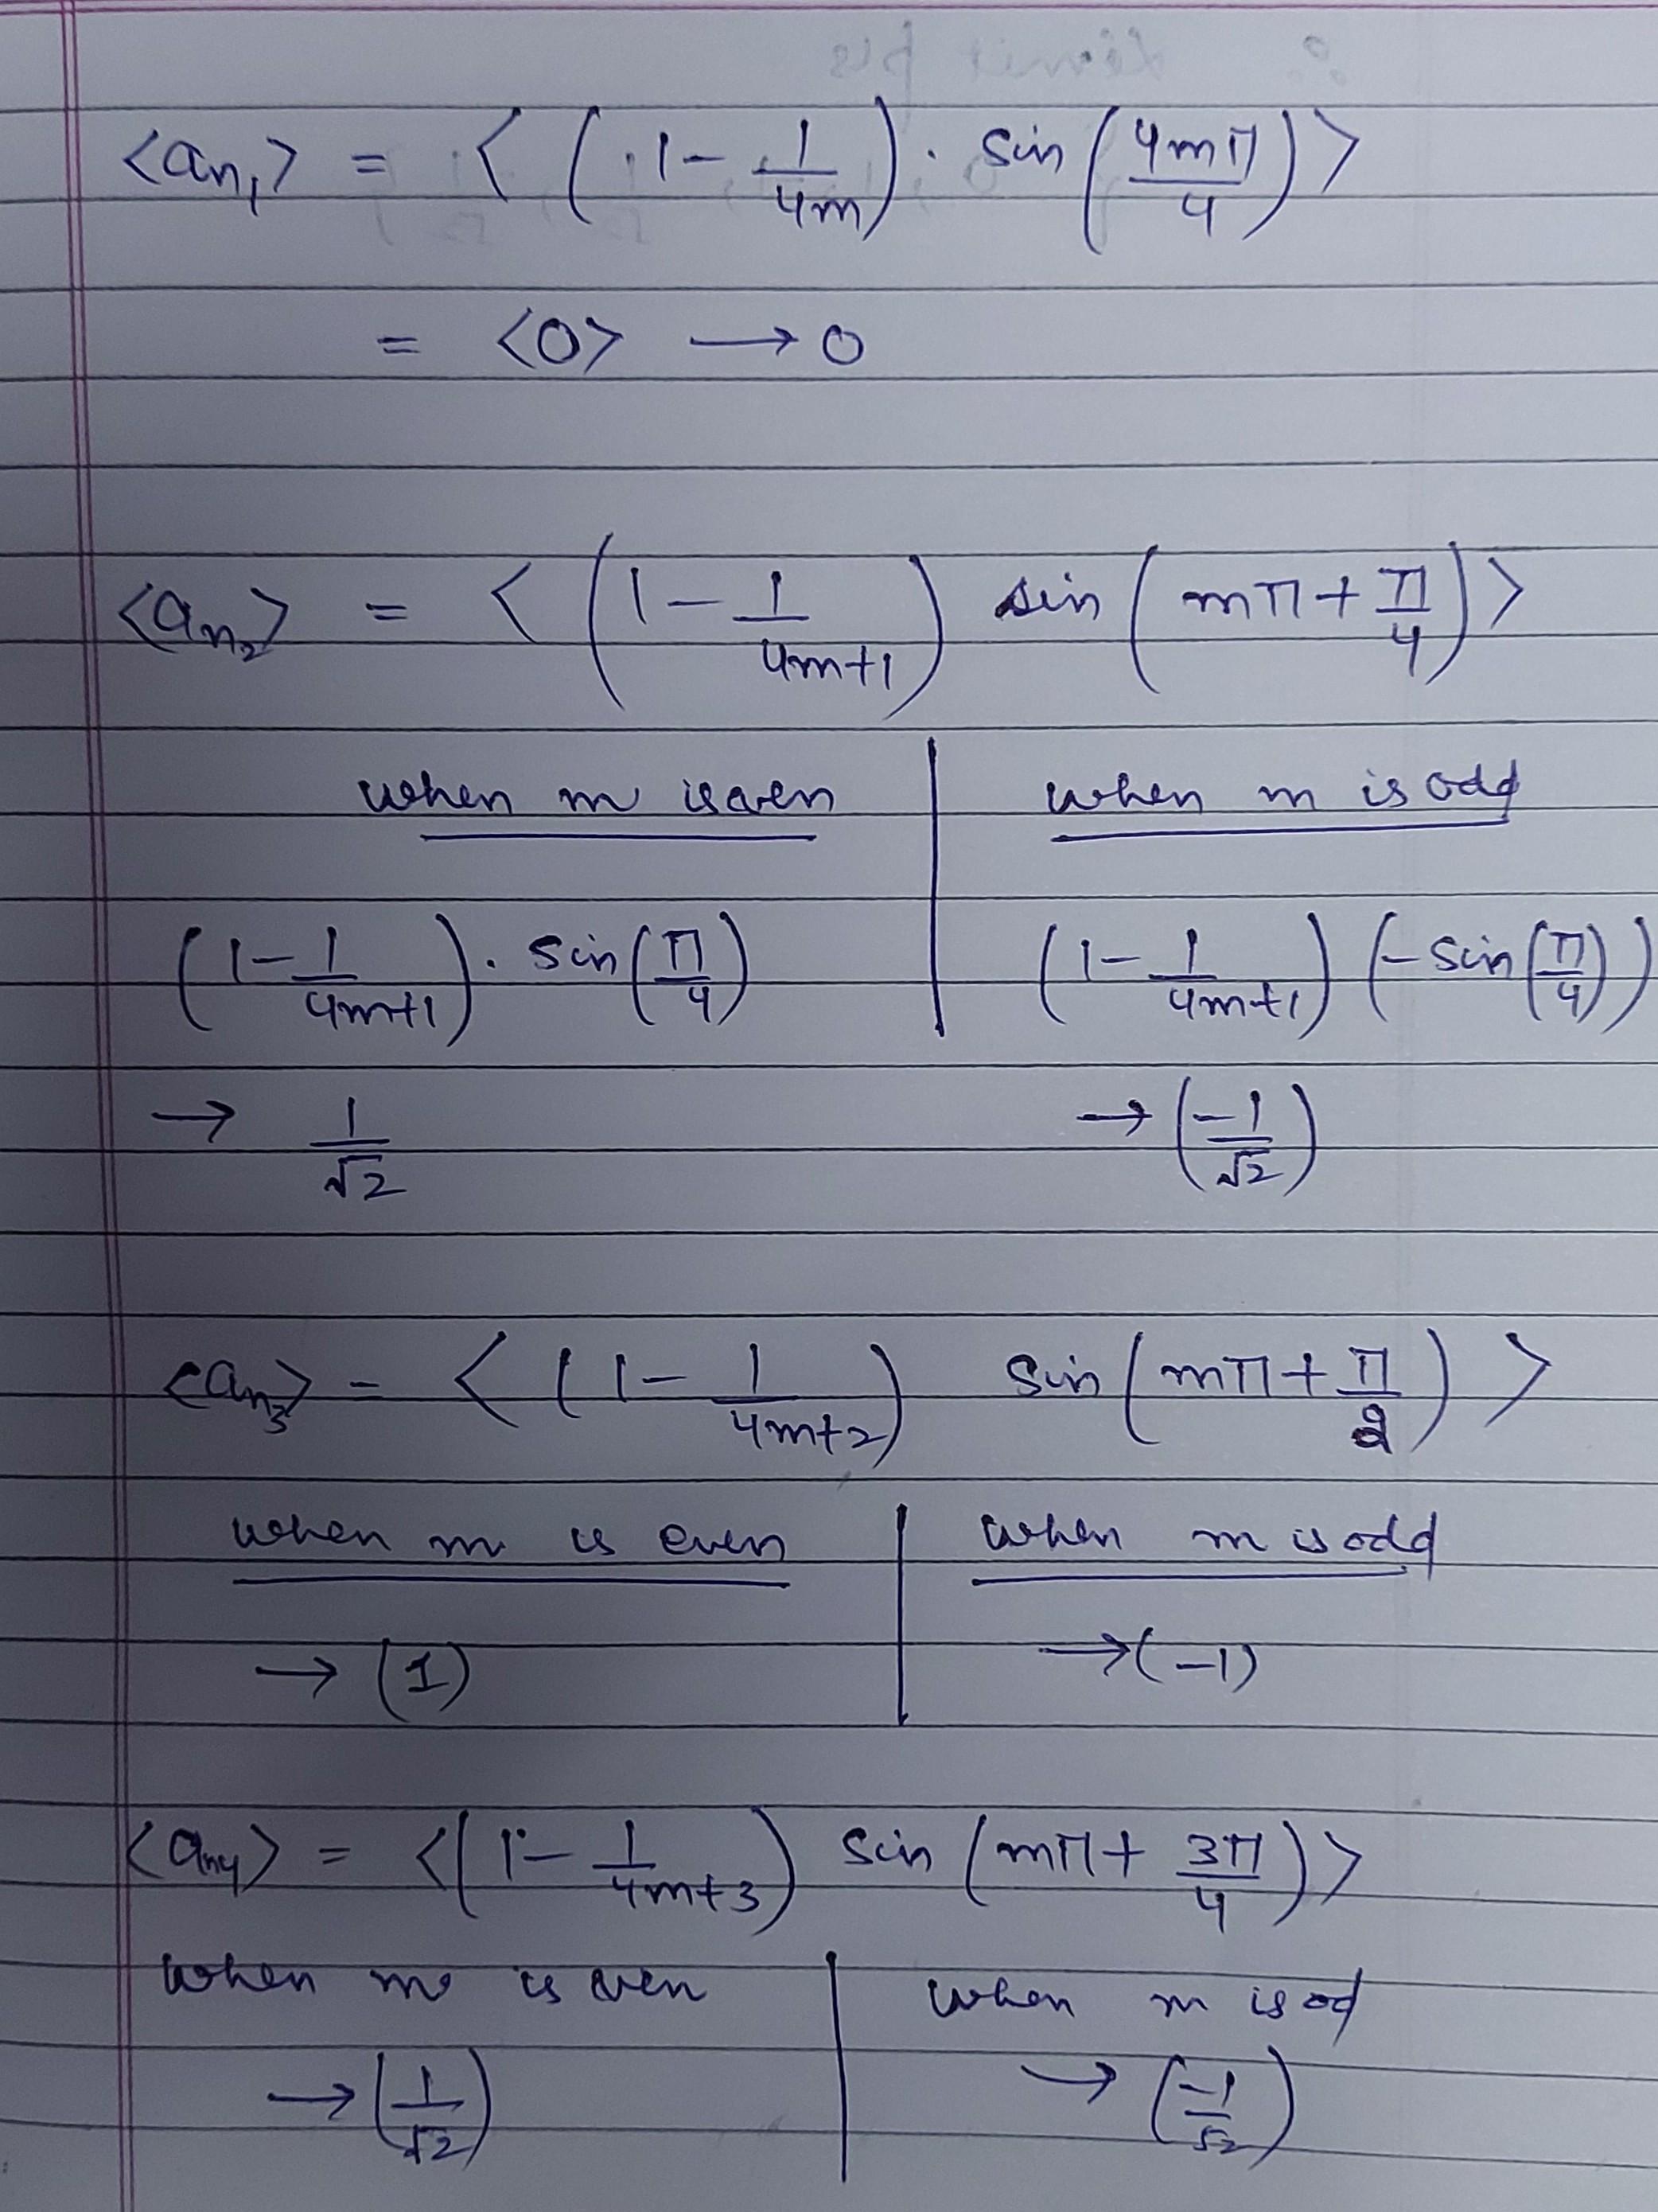 <a_{n_1}> = < (1 - 1/4m) · sin (4mπ/4) >
= <0> → 0
<a_{n_2}> = < (1 - 1/4m+1) sin (mπ + π/4) >
when m is even | when m is odd
(1 - 1/4m+1) · sin (π/4) | (1 - 1/4m+1) (-sin (π/4))
→ 1/√2 → (-1/√2)
<a_{n_3}> = < (1 - 1/4m+2) sin (mπ + π/2) >
when m is even | when m is odd
→ (1) | → (-1)
<a_{n_4}> = < (1 - 1/4m+3) sin (mπ + 3π/4) >
when m is even | when m is od
→ (1/√2) | → (-1/√2)